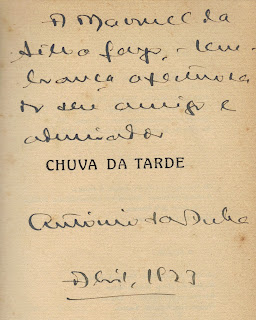 A Manuel da
Silva Gayo, - lem-
brança afectuosa
do seu amigo e
admirador
CHUVA DA TARDE
António da
Abril, 1923